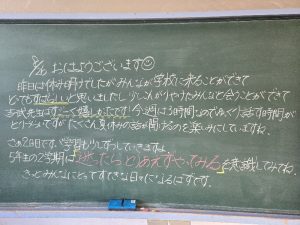 8/26 おはようございます☺
昨日は休み明けでしたがみんなが学校に来ることができて
とてもすばらしいと思いましたし、ひさしぶりのみんなと会うことができて
先生はすごーく嬉しかったです!今週は5時間なのでゆっくり話す時間が
とりにくいですがたくさん夏休みの話が聞けるのを楽しみにしていますね。
さあ2日目です。学習も少しずつしていきますよ
5年生の2学期は「迷ったらとりあえずやってみる」を意識してみてね。
きっとみんなにとってすてきな日々になるはずです。